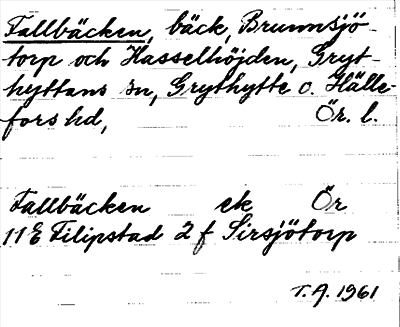 Fallbäcken, bäck, Brunnsjö-
torp och Hasselhöjden, Gryt-
hyttans sn, Grythytte o. Hälle-
fors hd, Ör. l.
Fallbäcken ek Ör
11 E Filipstad 2 f Sirsjötorp
T.A. 1961